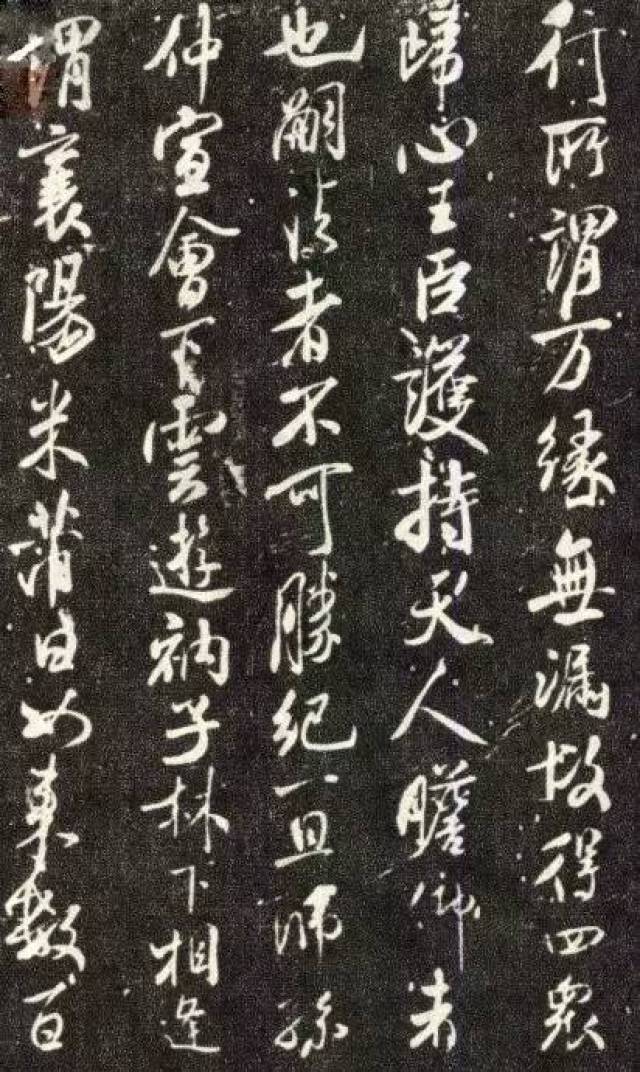 行所謂万緣無漏故得四衆
歸心王臣護持天人瞻仰者
也嗣法者不可勝紀一旦師孫
仲宣會下雲遊衲子林下相逢
謂襄陽米芾曰如來數百